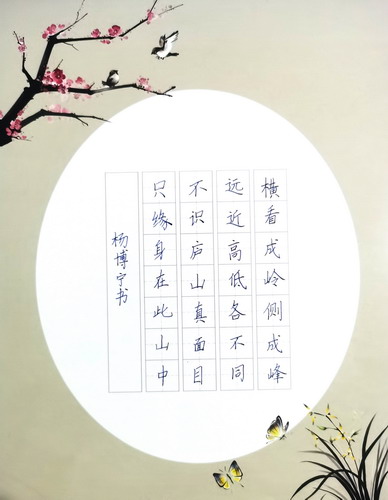 横看成岭侧成峰
远近高低各不同
不识庐山真面目
只缘身在此山中
杨博宁书